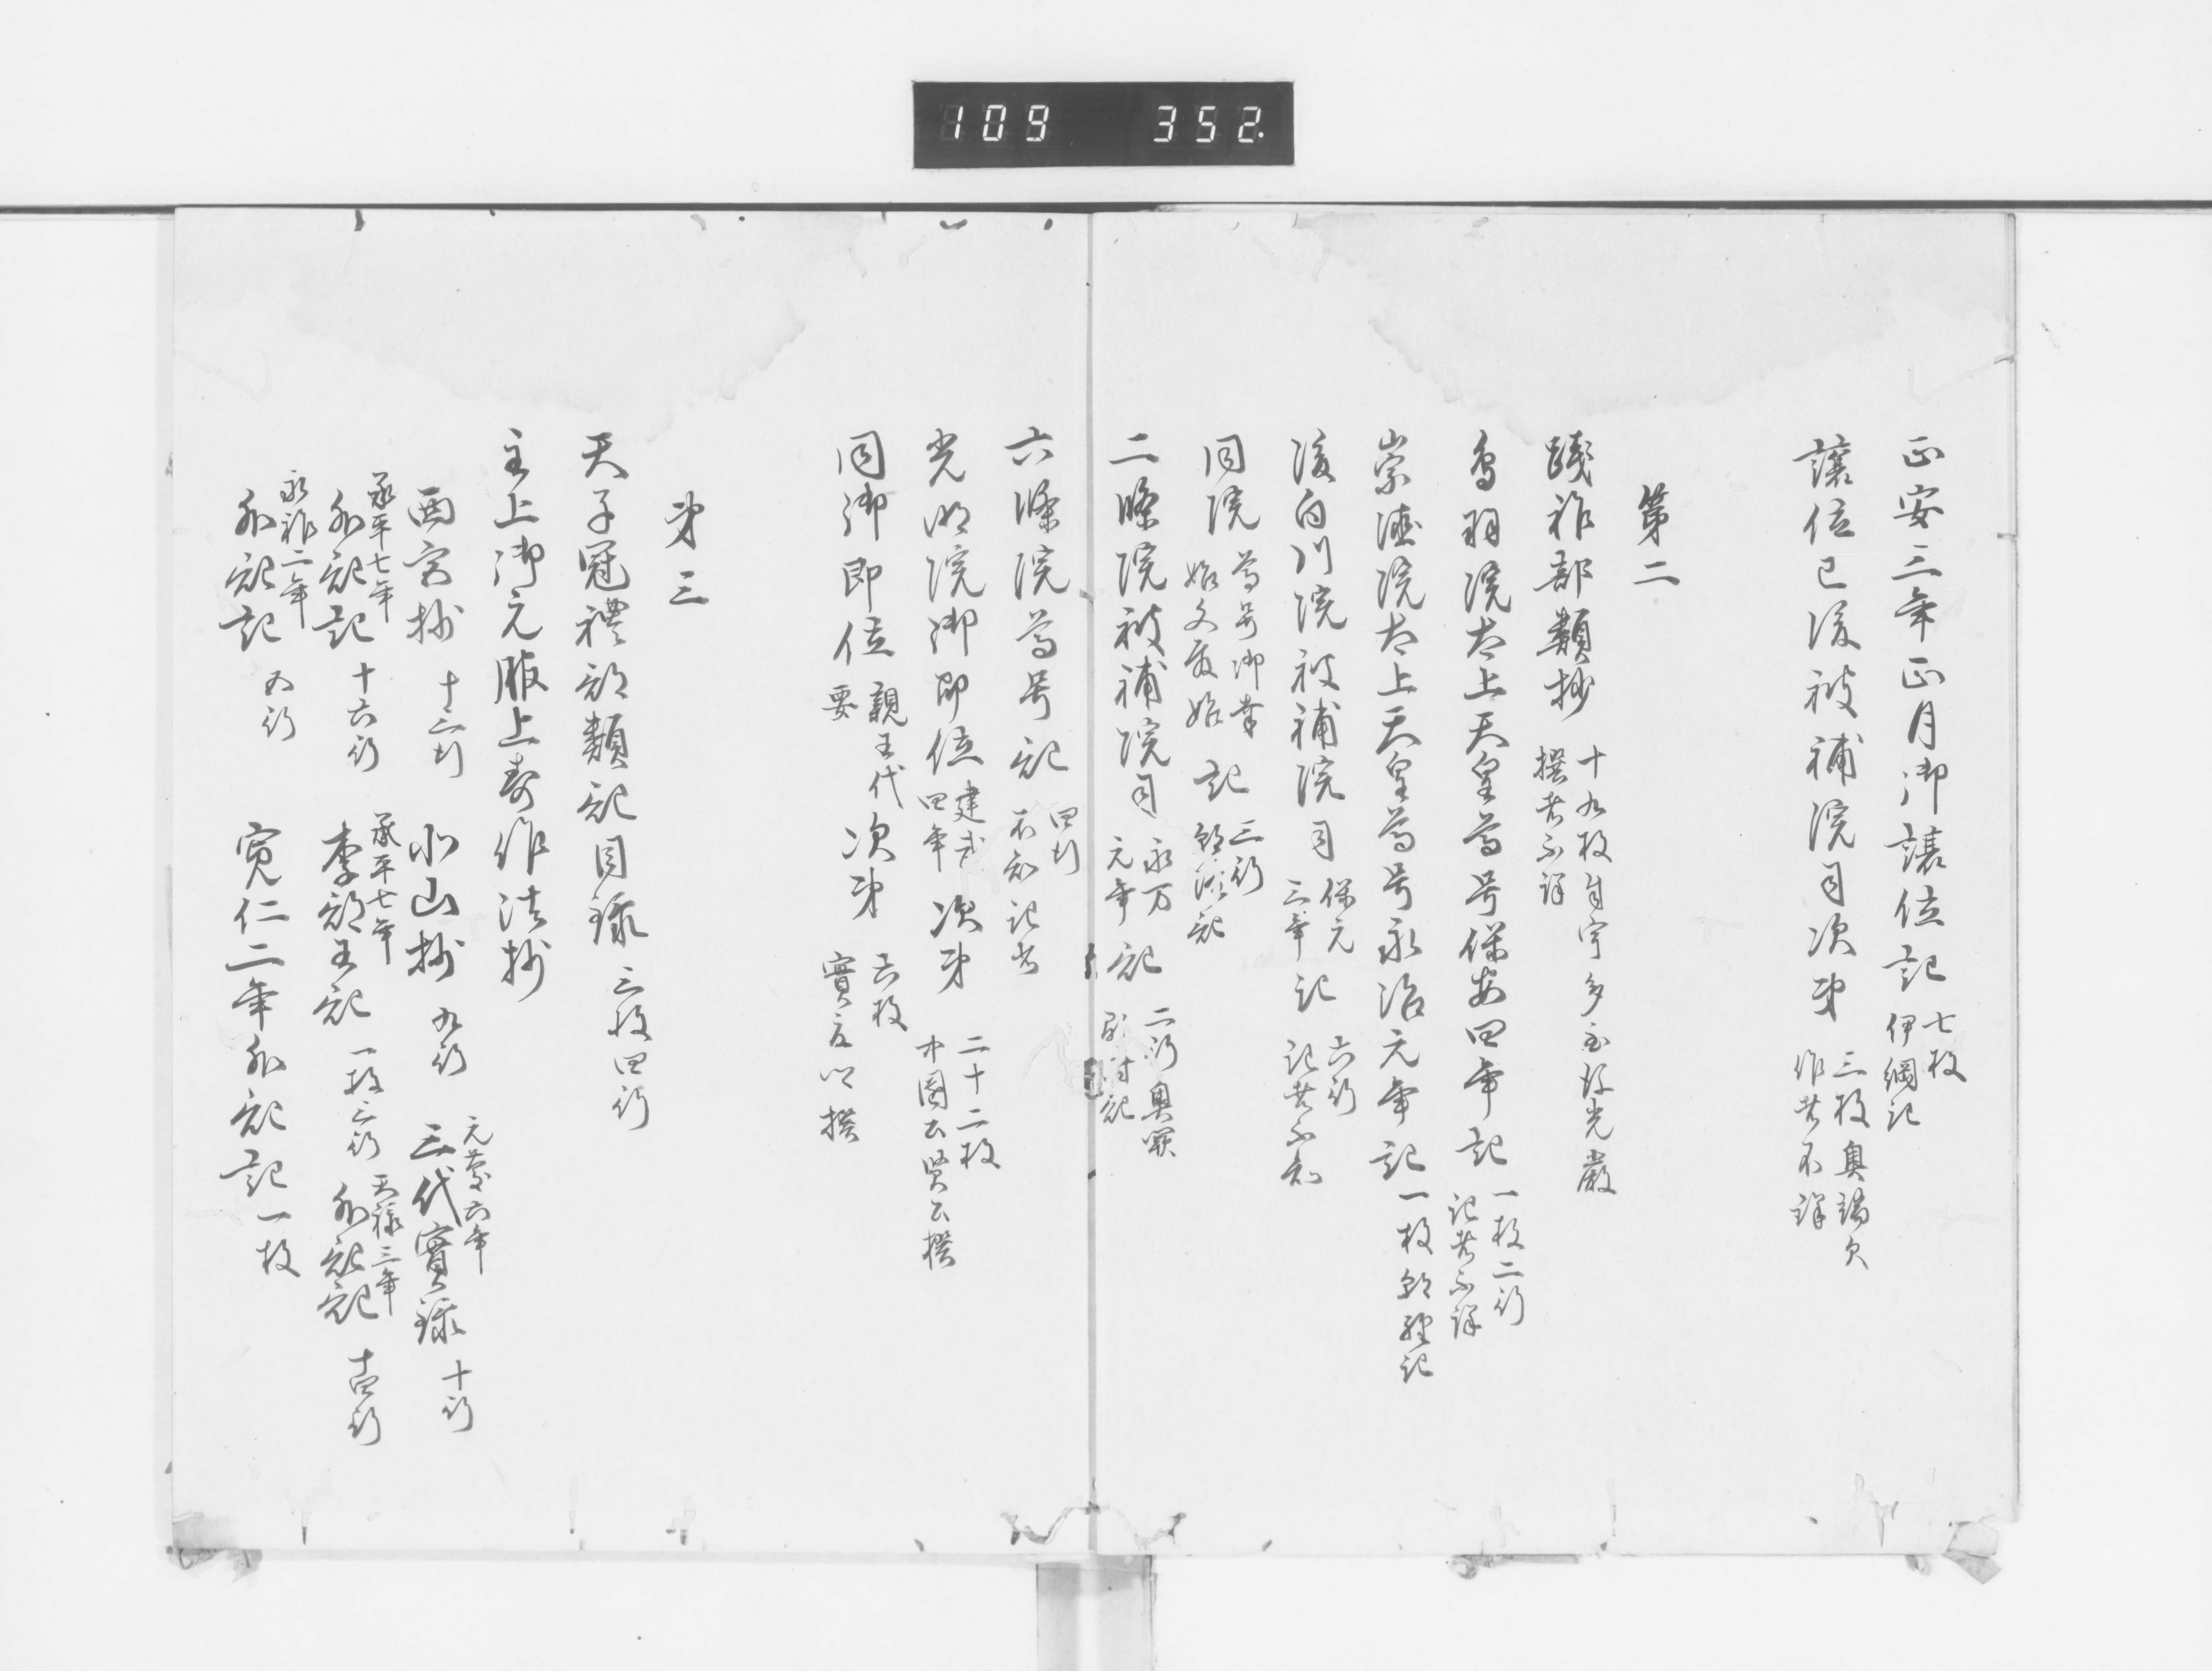 109 352.
正安三年正月御讓位記 七枚 伊綱記
讓位已後被補院司次第 三枚奥端欠 作者不詳
第二
踐祚部類抄 十九枚自宇多至後光嚴 撰者不詳
鳥羽院太上天皇尊号保安四年記 一枚二行 記者不詳
崇德院太上天皇尊号永治元年記 一枚朝隆記
後白川院被補院司 保元三年 記 六行 記者不知
同院 尊号御幸始 記 三行
二條院被補院司 永万元年 記 二行奥闕
六條院尊号記 四行 不知記者
光明院御即位 建武四年 次第 二十二枚 中園公賢公撰
同御即位 親王代要 次第 六枚 實夏公撰
第三
天子冠禮部類記目錄 三枚四行
主上御元服上壽作法抄
西宮抄 十二行 北山抄 九行 元慶六年 三代實録 十行
承平七年 外記記 十六行 承平七年 李部王記 一枚二行 天禄三年 外記記 十四行
永祚二年 外記記 五行 寛仁二年外記記 一枚